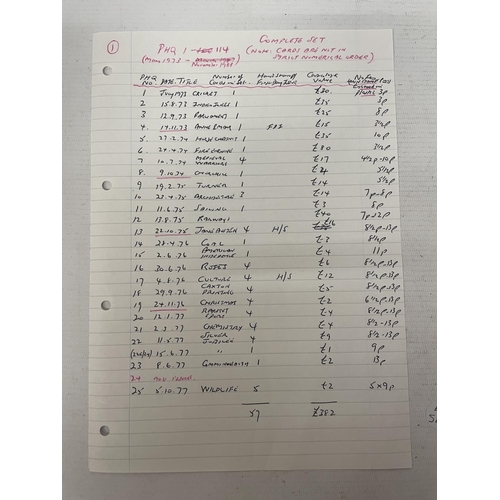 ① PHQ 1 - 114 COMPLETE SET
(May 1973 - November 1988 (NOTE: CARDS ARE NOT IN
STRICT NUMERICAL ORDER)
PHQ NO. DATE. TITLE Number of Cards in Set. Catalogue Value
1 July 1973 CRICKET 1 £30. 3p
2 15.8.73 1 £15 3p
3 12.9.73 PARLIAMENT 1 £25 8p
4. 14.11.73 1 £15 3½p
5 27.2.74 1 £35 10p
6. 24.4.74 FIRE ENGINE 1 £80 3½p
7 10.7.74 MEDIEVAL WARRIORS 4 £17 4½p-10p
8. 9.10.74 CHURCHILL 1 £24 5½p
9 19.2.75 TURNER 1 £14 5½p
10 23.4.75 ARCHITECTURE 3 £14 7p-8p
11 11.6.75 SAILING 1 £3 8p
12 13.8.75 RAILWAY £40 7p-12p
13 22.10.75 JANE AUSTEN 4 H/S £16 8½p-13p
14 28.4.76 1 £3 8½p
15 2.6.76 AMERICAN INDEPENCE 1 £4 11p
16 30.6.76 ROSES 4 £6 8½p-13p
17 4.8.76 CULTURE 4 H/S £12 8½p-13p
18 29.9.76 CAXTON PRINTING 4 £5 8½p-13p
19 24.11.76 CHRISTMAS 4 £2 6½p-13p
20 12.1.77 RACKET SPORT 4 £4 8½p-13p
21 2.3.77 CHEMISTRY 4 £4 8½-13p
22 11.5.77 SILVER JUBILEE 4 £9 8½-13p
15.6.77 " 1 £1 9p
23 8.6.77 1 £2 13p
24 not issued.
25 5.10.77 WILDLIFE 5 £2 5x9p
57 £382